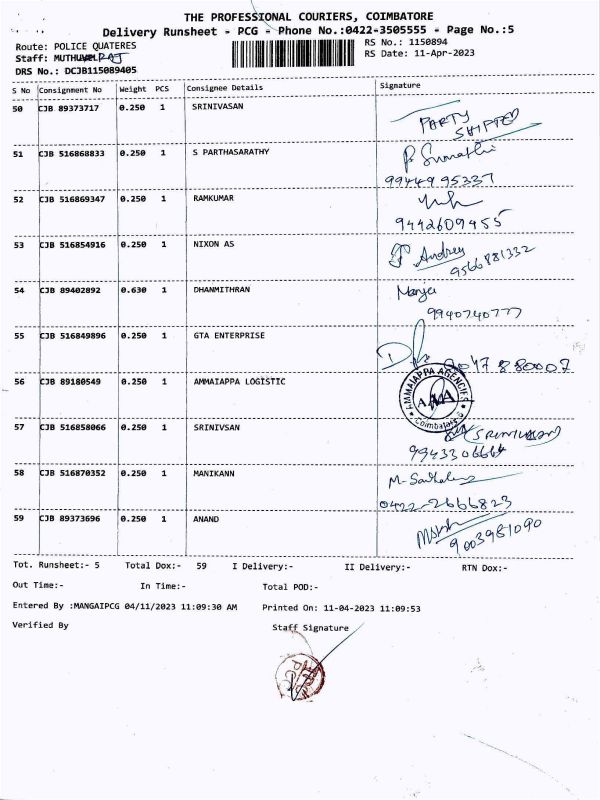 THE PROFESSIONAL COURIERS, COIMBATORE
Delivery Runsheet - PCG - Phone No.:0422-3505555 - Page No.:5
Route: POLICE QUATERES
RS No.: 1150894
Staff: MUTHU RAJ
RS Date: 11-Apr-2023
DRS No.: DCJB115089405
S No Consignment No Weight PCS Consignee Details Signature
50 CJB 89373717 0.250 1 SRINIVASAN PARTY SHIFTED
51 CJB 516868833 0.250 1 S PARTHASARATHY P Sumathi
9944995337
52 CJB 516869347 0.250 1 RAMKUMAR
9442609455
53 CJB 516854916 0.250 1 NIXON AS Andrey
9566881332
54 CJB 89402892 0.630 1 DHANMITHRAN Manju
9940740777
55 CJB 516849896 0.250 1 GTA ENTERPRISE
9047880007
56 CJB 89180549 0.250 1 AMMAIAPPA LOGISTIC AMMAIAPPA AGENCIES
AAA
Coimbatore
57 CJB 516858066 0.250 1 SRINIVSAN SRINIVASAN
9943306664
58 CJB 516870352 0.250 1 MANIKANN
0422-2666823
59 CJB 89373696 0.250 1 ANAND
9003981090
Tot. Runsheet:- 5 Total Dox:- 59 I Delivery:- II Delivery:- RTN Dox:-
Out Time:- In Time:- Total POD:-
Entered By :MANGAIPCG 04/11/2023 11:09:30 AM Printed On: 11-04-2023 11:09:53
Verified By Staff Signature